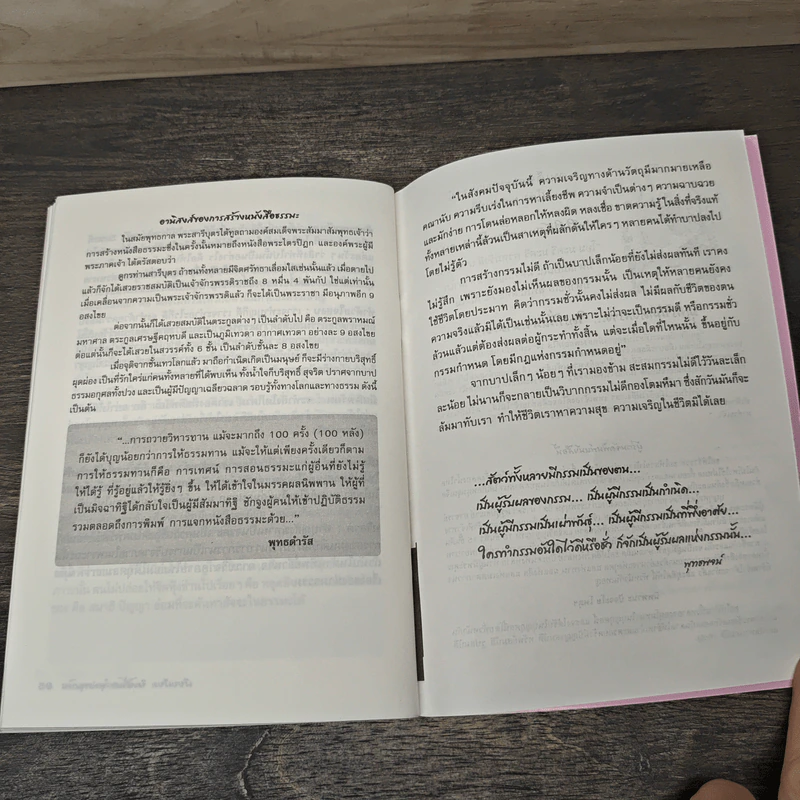 อานิสงส์ของการสร้างหนังสือธรรมะ
ในสมัยพุทธกาล พระสารีบุตรได้ทูลถามองค์สมเด็จพระสัมมาสัมพุทธเจ้าว่า
การสร้างหนังสือธรรมะซึ่งในครั้งนั้นหมายถึงหนังสือพระไตรปิฎก และองค์พระผู้มี
พระภาคเจ้า ได้ตรัสตอบว่า
ดูกรท่านสารีบุตร ถ้าชนทั้งหลายมีจิตศรัทธาเลื่อมใสเช่นนั้นแล้ว เมื่อตายไป
แล้วก็จักได้เสวยราชสมบัติเป็นเจ้าจักรพรรดิราชถึง 8 หมื่น 4 พันกัป ใช่แต่เท่านั้น
เมื่อเคลื่อนจากความเป็นพระเจ้าจักรพรรดิแล้ว ก็จะได้เป็นพระราชา มีอนุภาพอีก 9
อสงไขย
ต่อจากนั้นก็ได้เสวยสมบัติในตระกูลต่างๆ เป็นลำดับไป คือ ตระกูลพราหมณ์
มหาศาล ตระกูลเศรษฐีคฤหบดี และเป็นภูมิเทวดา อากาศเทวดา อย่างละ 9 อสงไขย
ต่อแต่นั้นก็จะได้เสวยในสวรรค์ทั้ง 6 ชั้น เป็นลำดับชั้นละ 8 อสงไขย
เมื่อจุติจากชั้นเทวโลกแล้ว มาถือกำเนิดเกิดเป็นมนุษย์ ก็จะมีร่างกายบริสุทธิ์
ผุดผ่อง เป็นที่รักใคร่แก่คนทั้งหลายที่ได้พบเห็น ทั้งน้ำใจก็บริสุทธิ์ สุจริต ปราศจากบาป
ธรรมอกุศลทั้งปวง และเป็นผู้มีปัญญาเฉลียวฉลาด รอบรู้ทั้งทางโลกและทางธรรม ดังนี้
เป็นต้น
“...การถวายวิหารทาน แม้จะมากถึง 100 ครั้ง (100 หลัง)
ก็ยังได้บุญน้อยกว่าการให้ธรรมทาน แม้จะให้แต่เพียงครั้งเดียวก็ตาม
การให้ธรรมทานก็คือ การเทศน์ การสอนธรรมะแก่ผู้อื่นที่ยังไม่รู้
ให้ได้รู้ ที่รู้อยู่แล้วให้รู้ยิ่งๆ ขึ้น ให้ได้เข้าใจในมรรคผลนิพพาน ให้ผู้ที่
เป็นมิจฉาทิฐิได้กลับใจเป็นผู้มีสัมมาทิฐิ ชักจูงผู้คนให้เข้าปฏิบัติธรรม
รวมตลอดถึงการพิมพ์ การแจกหนังสือธรรมะด้วย...”
พุทธดำรัส
“ในสังคมปัจจุบันนี้ ความเจริญทางด้านวัตถุมีมากมายเหลือ
คณานับ ความรีบเร่งในการหาเลี้ยงชีพ ความจำเป็นต่างๆ ความฉาบฉวย
และมักง่าย การโดนล่อหลอกให้หลงผิด หลงเชื่อ ขาดความรู้ในสิ่งที่จริงแท้
ทั้งหลายเหล่านี้ล้วนเป็นสาเหตุที่ผลักดันให้ใครๆ หลายคนได้ทำบาปลงไป
โดยไม่รู้ตัว
การสร้างกรรมไม่ดี ถ้าเป็นบาปเล็กน้อยที่ยังไม่ส่งผลทันที เราคง
ไม่รู้สึก เพราะยังมองไม่เห็นผลของกรรมนั้น เป็นเหตุให้หลายคนยังคง
ใช้ชีวิตโดยประมาท คิดว่ากรรมชั่วนั้นคงไม่ส่งผล ไม่มีผลกับชีวิตของตน
ความจริงแล้วมิได้เป็นเช่นนั้นเลย เพราะไม่ว่าจะเป็นกรรมดี หรือกรรมชั่ว
ล้วนแล้วแต่ต้องส่งผลต่อผู้กระทำทั้งสิ้น แต่จะเมื่อใดที่ไหนนั้น ขึ้นอยู่กับ
กรรมกำหนด โดยมีกฎแห่งกรรมกำหนดอยู่”
จากบาปเล็กๆ น้อยๆ ที่เรามองข้าม สะสมกรรมไม่ดีไว้วันละเล็ก
ละน้อย ไม่นานก็จะกลายเป็นวิบากกรรมไม่ดีกองโตมหึมา ซึ่งสักวันมันก็จะ
ล้มมาทับเรา ทำให้ชีวิตเราหาความสุข ความเจริญในชีวิตมิได้เลย
...สัตว์ทั้งหลายมีกรรมเป็นของตน...
เป็นผู้รับผลของกรรม... เป็นผู้มีกรรมเป็นกำเนิด...
เป็นผู้มีกรรมเป็นเผ่าพันธุ์... เป็นผู้มีกรรมเป็นที่พึ่งอาศัย...
ใครทำกรรมอันใดไว้ดีหรือชั่ว ก็จักเป็นผู้รับผลแห่งกรรมนั้น...
พุทธพจน์